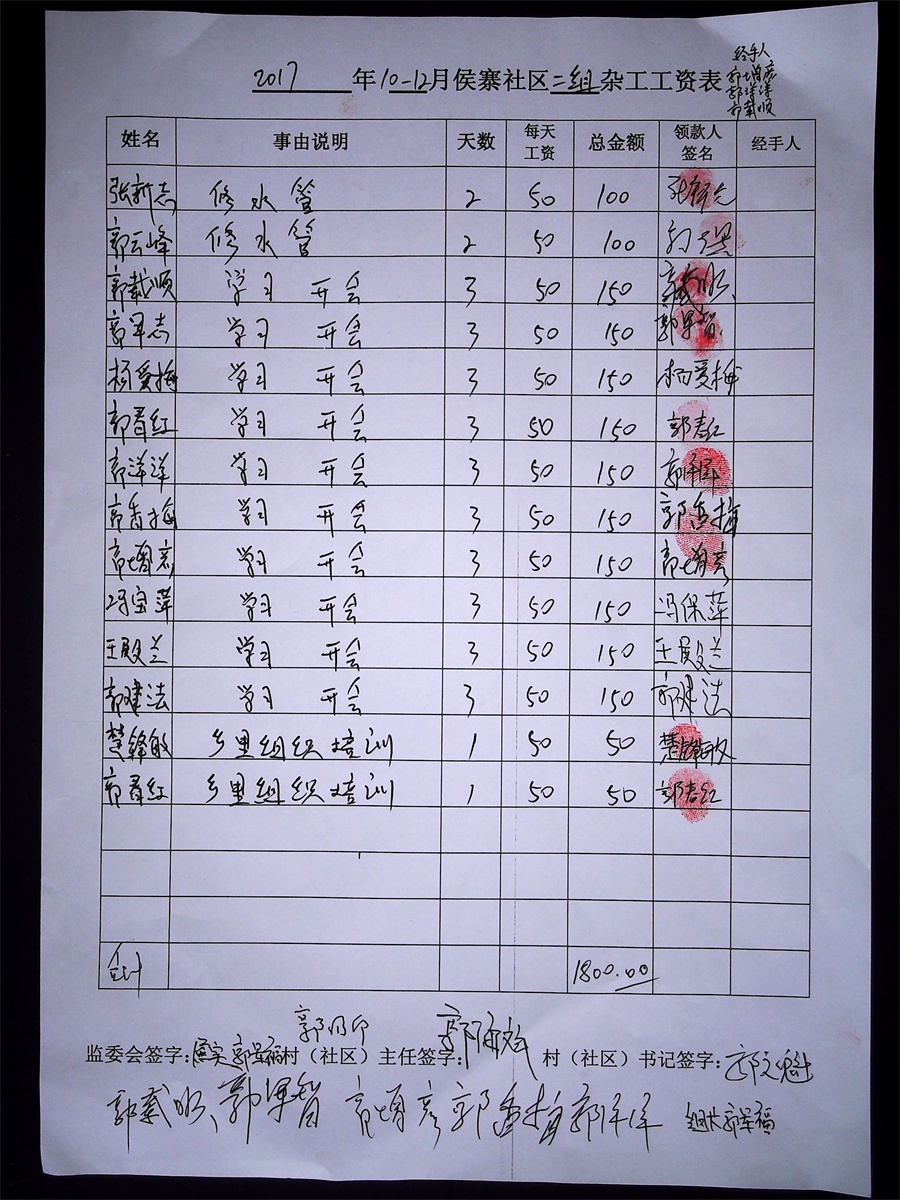 2017 年10-12月侯寨社区二组杂工工资表
经手人
郭增彦
郭洋洋
郭载顺
姓名 事由说明 天数 每天工资 总金额 领款人签名 经手人
张新志 修水管 2 50 100 张新志
郭云峰 修水管 2 50 100
郭载顺 学习 开会 3 50 150 郭载顺
郭军志 学习 开会 3 50 150 郭军智
杨爱梅 学习 开会 3 50 150 杨爱梅
郭春红 学习 开会 3 50 150 郭春红
郭洋洋 学习 开会 3 50 150 郭洋洋
郭香梅 学习 开会 3 50 150 郭香梅
郭增彦 学习 开会 3 50 150 郭增彦
冯宝萍 学习 开会 3 50 150 冯保萍
王殿兰 学习 开会 3 50 150 王殿兰
郭建法 学习 开会 3 50 150 郭建法
楚锋敏 乡里组织培训 1 50 50 楚锋敏
郭春红 乡里组织培训 1 50 50 郭春红
合计 1800.00
监委会签字: 郭军福 村（社区）主任签字: 村（社区）书记签字: 郭文魁
郭载顺 郭军智 郭增彦 郭香梅 郭洋洋 组长郭军福